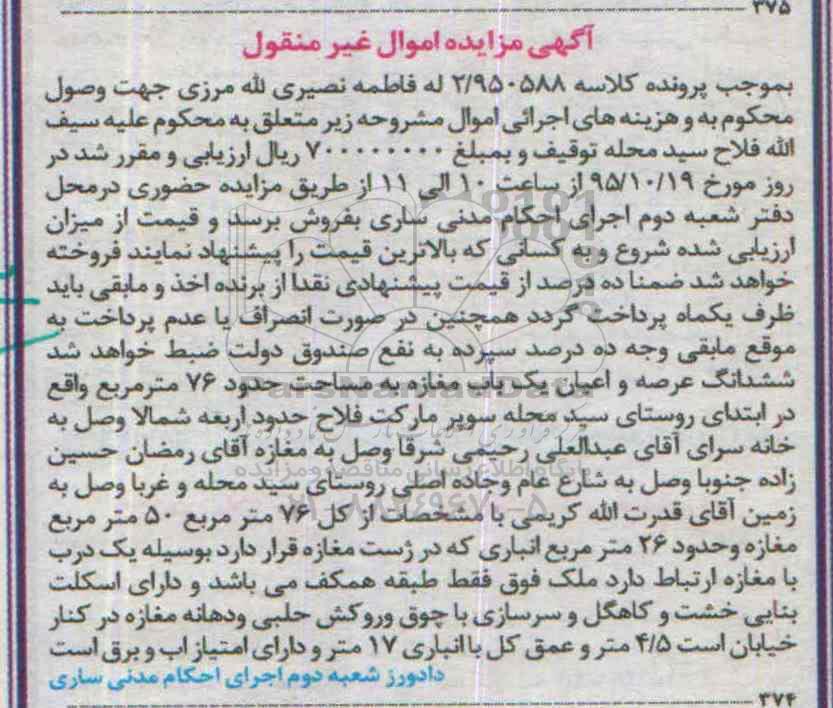 ۳۷۵
آگهی مزایده اموال غیر منقول
بموجب پرونده کلاسه ۲/۹۵۰۵۸۸ له فاطمه نصیری لله مرزی جهت وصول
محکوم به و هزینه های اجرائی اموال مشروحه زیر متعلق به محکوم علیه سیف
الله فلاح سید محله توقیف و بمبلغ ۷۰۰۰۰۰۰۰۰ ریال ارزیابی و مقرر شد در
روز مورخ ۹۵/۱۰/۱۹ از ساعت ۱۰ الی ۱۱ از طریق مزایده حضوری درمحل
دفتر شعبه دوم اجرای احکام مدنی ساری بفروش برسد و قیمت از میزان
ارزیابی شده شروع و به کسانی که بالاترین قیمت را پیشنهاد نمایند فروخته
خواهد شد ضمنا ده درصد از قیمت پیشنهادی نقدا از برنده اخذ و مابقی باید
ظرف یکماه پرداخت گردد همچنین در صورت انصراف یا عدم پرداخت به
موقع مابقی وجه ده درصد سپرده به نفع صندوق دولت ضبط خواهد شد
ششدانگ عرصه و اعیان یک باب مغازه به مساحت حدود ۷۶ مترمربع واقع
در ابتدای روستای سید محله سوپر مارکت فلاح حدود اربعه شمالا وصل به
خانه سرای آقای عبدالعلی رحیمی شرقا وصل به مغازه آقای رمضان حسین
زاده جنوبا وصل به شارع عام وجاده اصلی روستای سید محله و غربا وصل به
زمین آقای قدرت الله کریمی با مشخصات از کل ۷۶ متر مربع ۵۰ متر مربع
مغازه وحدود ۲۶ متر مربع انباری که در ژست مغازه قرار دارد بوسیله یک درب
با مغازه ارتباط دارد ملک فوق فقط طبقه همکف می باشد و دارای اسکلت
بنایی خشت و کاهگل و سرسازی با چوق وروکش حلبی ودهانه مغازه در کنار
خیابان است ۴/۵ متر و عمق کل با انباری ۱۷ متر و دارای امتیاز اب و برق است
دادورز شعبه دوم اجرای احکام مدنی ساری
۳۷۴
ParsNamadData
پایگاه اطلاع رسانی مناقصه و مزایده